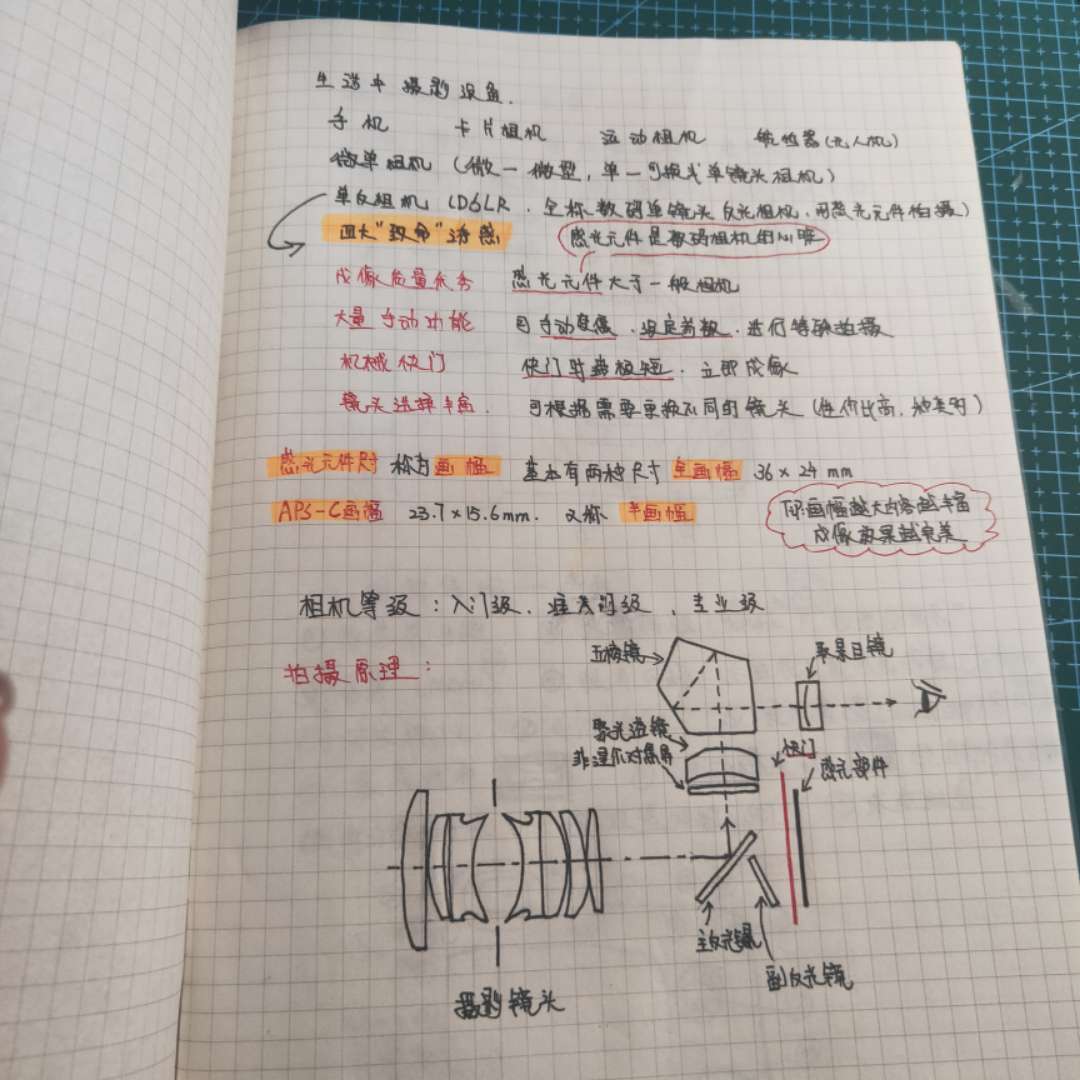 生活中摄影设备.
手机 卡片相机 运动相机 航拍器(无人机)
微单相机 (微一微型,单一可换式单镜头相机)
单反相机 (DSLR.全称数码单镜头反光相机.用感光元件拍摄)
四大"致命"诱惑 感光元件是数码相机的心脏
成像质量优秀 感光元件大于一般相机
大量手动功能 可手动变焦.设定参数.进行特殊拍摄
机械快门 快门时滞极短.立即成像
镜头选择丰富. 可根据需要更换不同的镜头(性价比高,
感光元件尺寸 称为画幅 基本有两种尺寸 全画幅 36×24mm
APS-C画幅 23.7×15.6mm. 又称 半画幅
TIP:画幅越大内容越丰富
成像效果越完美
相机等级:入门级.准专门级.专业级
拍摄原理:
五棱镜
取景目镜
聚光透镜
快门
对焦屏
感光部件
主反光镜
副反光镜
摄影镜头